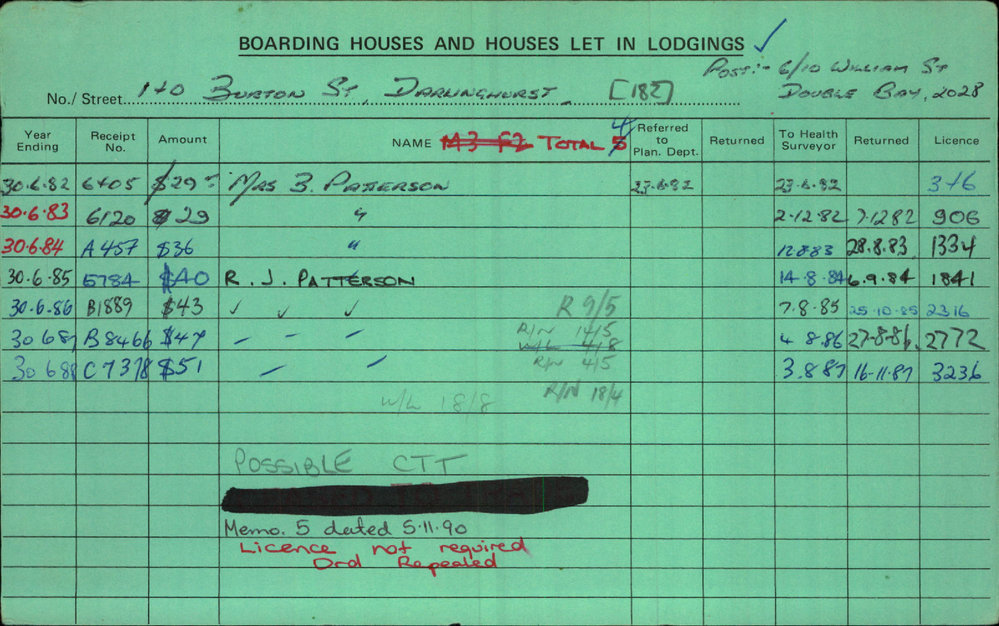 BOARDING HOUSES AND HOUSES LET IN LODGINGS ✓
Post:- 6/10 William St
Double Bay, 2028
No./Street 140 Burton St, Darlinghurst. [182]
Year Ending Receipt No. Amount NAME M3 F2 TOTAL 5 4 Referred to Plan. Dept. Returned To Health Surveyor Returned Licence
30.6.82 6405 $29 - Mrs B. Patterson 23.6.82 23.6.82 376
30.6.83 6120 $29 " 2.12.82 7.12.82 906
30.6.84 A457 $36 " 12.8.83 28.8.83 1334
30.6.85 5784 $40 R. J. PATTERSON 14.8.84 6.9.84 1841
30.6.86 B1889 $43 ✓ ✓ ✓ R 9/5 7.8.85 25.10.85 2316
30 6 87 B8466 $47 - - - R/N 14/5 4 8.86 27-8-86. 2772
W/L 4/8
30 6 88 C7378 $51 R/N 4/5 3.8.87 16-11-87 3236
W/L 18/8 R/N 18/4
POSSIBLE CTT
Memo. 5 dated 5.11.90
Licence not required
Ord Repealed